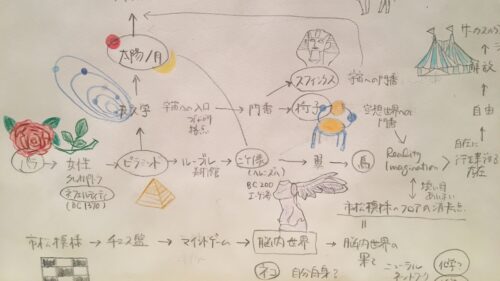 太陽/月
サーカステント
解放
自由
スフィンクス
宇宙への門番
天文学
宇宙への入口
門番
椅子
空想世界への
門番
自在に
行き来する
存在
バラ
女性
ピラミッド
ルーブル
美術館
ニケ像
BC200
エーゲ海
翼
鳥
Reality
Imagination
境い目
あいまい
市松模様のフロアの消失点
市松模様
チェス盤
マインドゲーム
脳内世界
脳内世界の
果て
ネコ
自分自身?
ニューラル
ネットワーク
化学